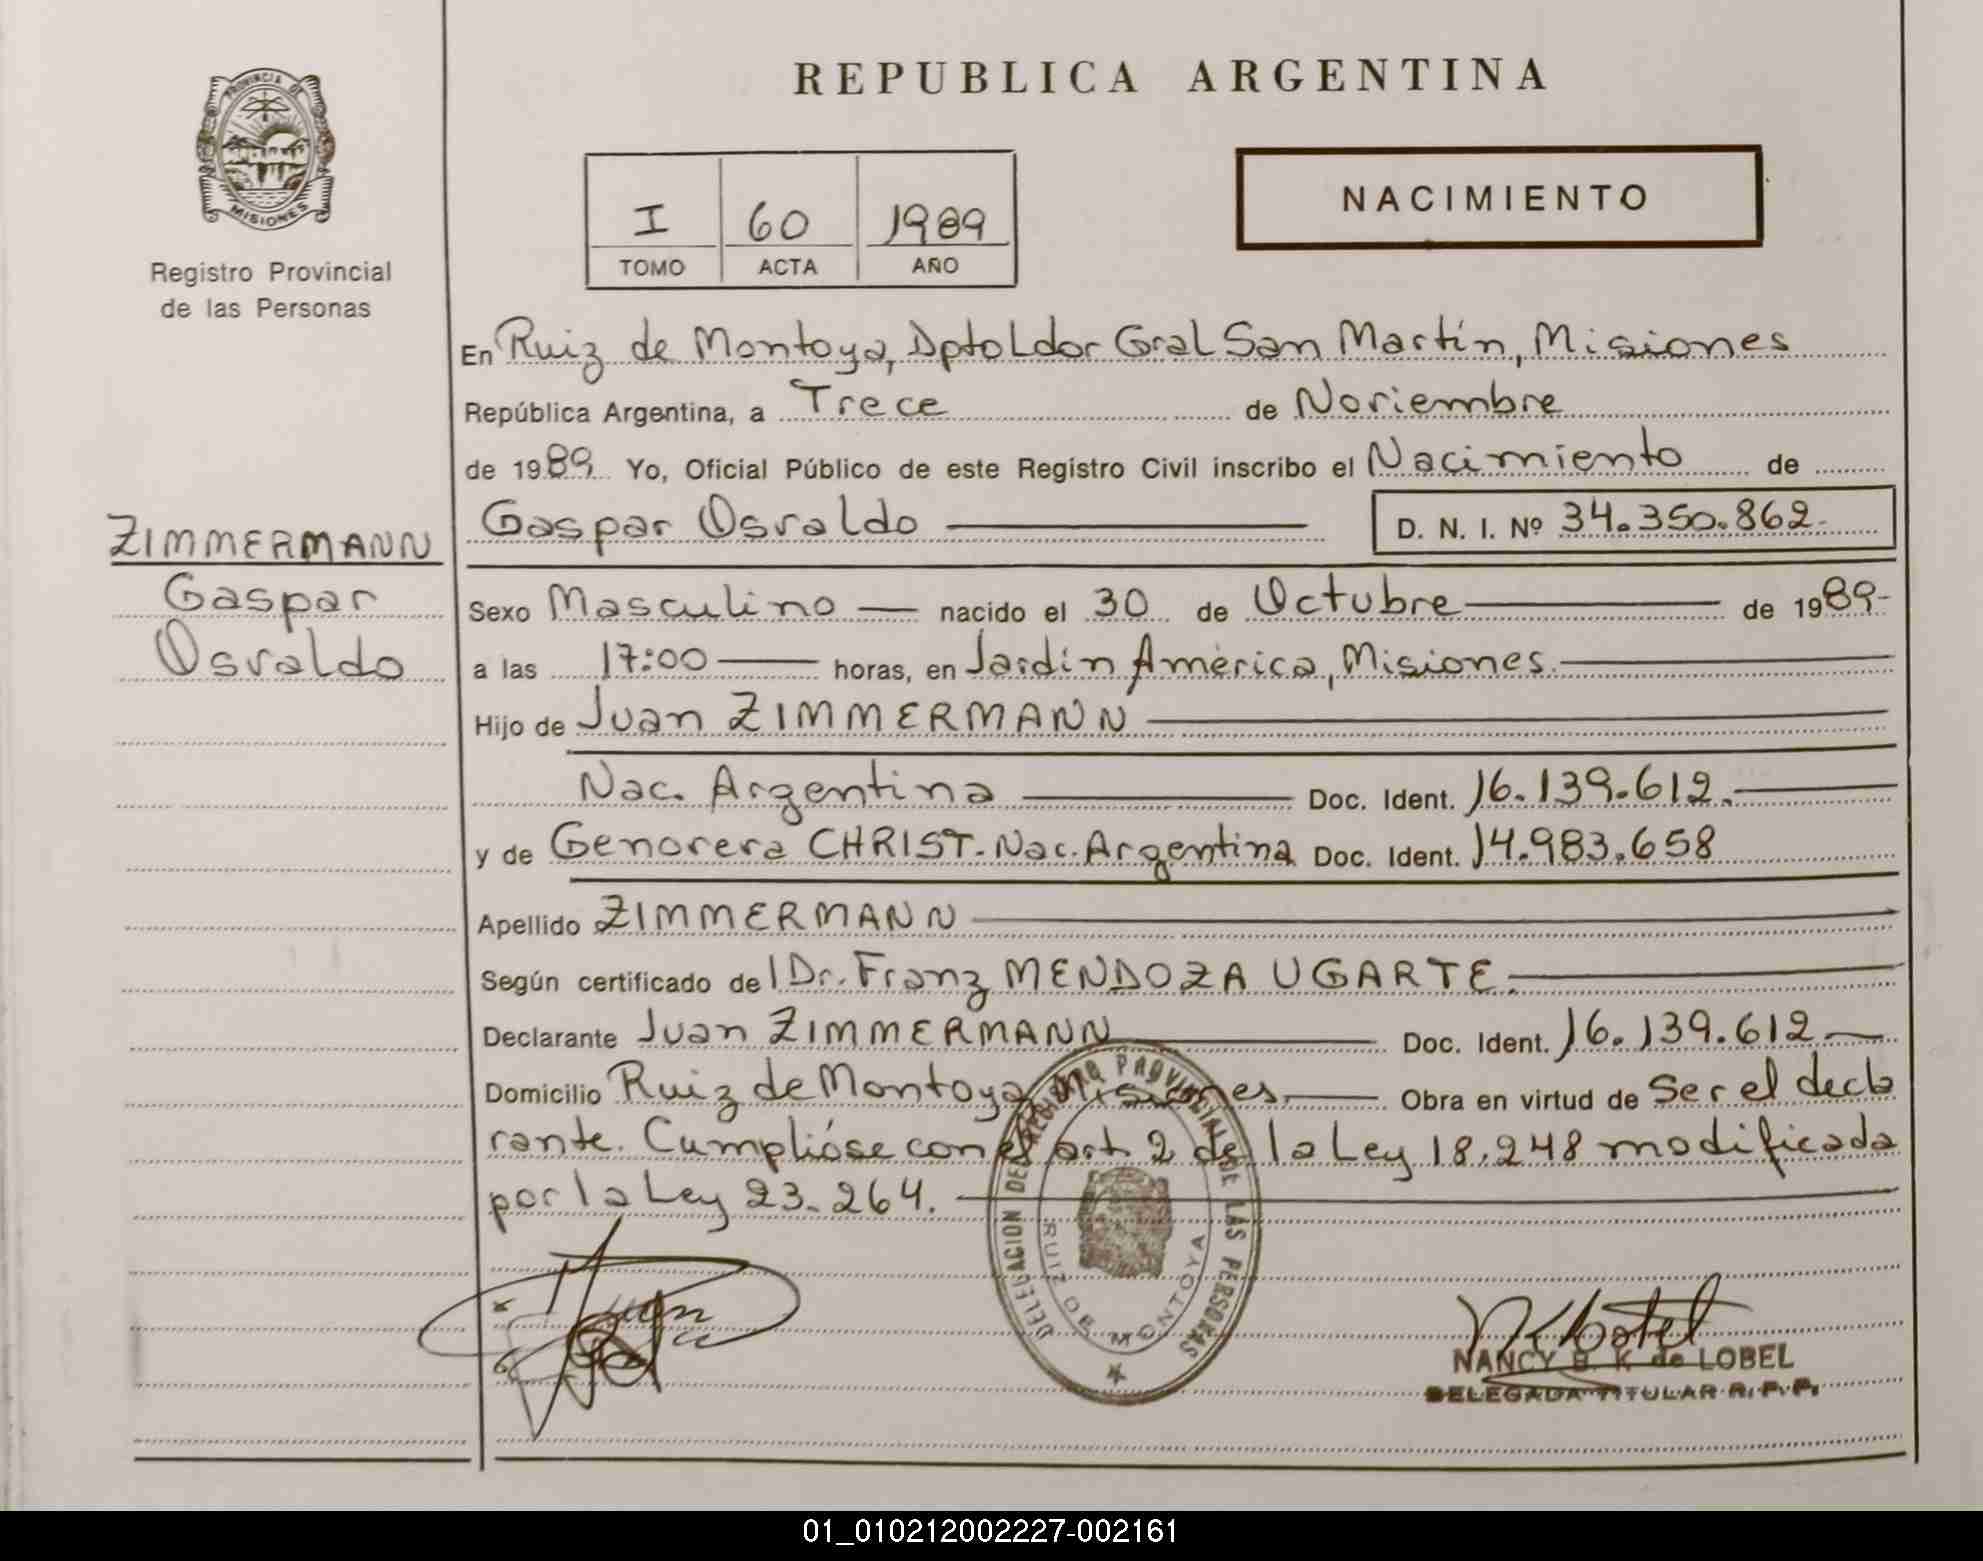 REPUBLICA ARGENTINA
PROVINCIA DE
MISIONES
Registro Provincial
de las Personas
I 60 1989
TOMO ACTA AÑO
NACIMIENTO
En Ruiz de Montoya, Dpto Ldor Gral San Martín, Misiones
República Argentina, a Trece de Noviembre
de 1989 Yo, Oficial Público de este Registro Civil inscribo el Nacimiento de
Gaspar Osvaldo D. N. I. Nº 34.350.862
ZIMMERMANN
Gaspar
Osvaldo
Sexo Masculino nacido el 30 de Octubre de 1989
a las 17:00 horas, en Jardín América, Misiones.
Hijo de Juan ZIMMERMANN
Nac. Argentina Doc. Ident. 16.139.612.
y de Genoveva CHRIST. Nac. Argentina Doc. Ident. 14.983.658
Apellido ZIMMERMANN
Según certificado de l Dr. Franz MENDOZA UGARTE.
Declarante Juan ZIMMERMANN Doc. Ident. 16.139.612
Domicilio Ruiz de Montoya, Misiones, Obra en virtud de Ser el decla
rante. Cumplióse con el art. 2 de la Ley 18.248 modificada
por la Ley 23.264.
DELEGACION DEL REGISTRO PROVINCIAL DE LAS PERSONAS
RUIZ DE MONTOYA
NANCY B. K. de LOBEL
DELEGADA TITULAR R. P. P.
01_010212002227-002161